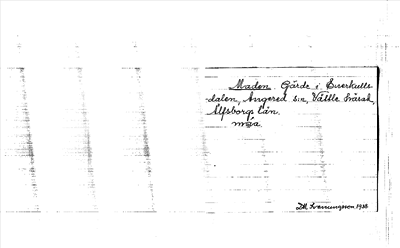 Maden. Gärde i Sverkulls-
dalen, Angered sn, Vättle härad,
Älfsborgs län.
måa.
Svenungsson 1928